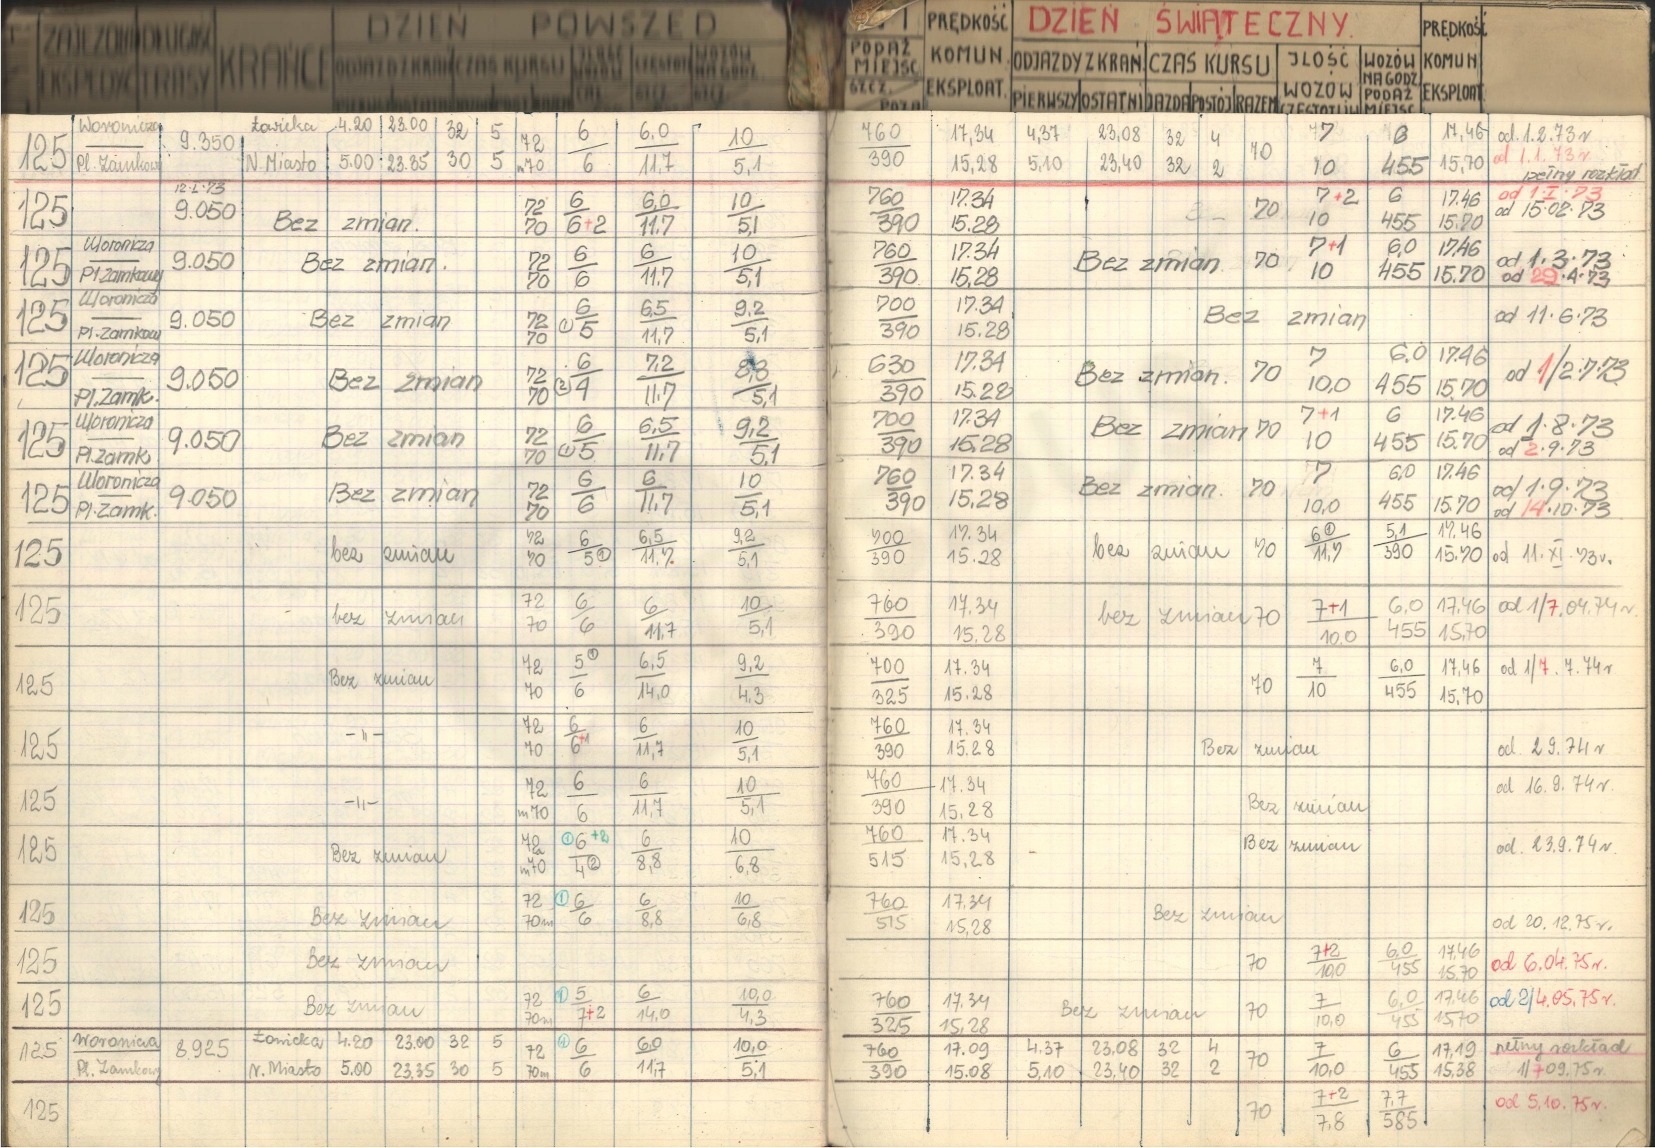 DZIEŃ POWSZED
ZAJEZDNIA DŁUGOŚĆ KRAŃCE
EKSPEDYC TRASY
ODJAZD Z KRAŃ CZAS KURSU
PRĘDKOŚĆ DZIEŃ ŚWIĄTECZNY. PRĘDKOŚĆ
PODAŻ MIEJSC KOMUN. ODJAZDY Z KRAŃ CZAS KURSU JLOŚĆ WOZÓW KOMUN
SZCZ. EKSPLOAT. PIERWSZY OSTATNI JAZDA POSTÓJ RAZEM WOZÓW NA GODZ PODAŻ EKSPLOAT
POZA CZĘSTOTLIW MIEJSC
125 Woronicza 9.350 Łowicka 4.20 23.00 32 5 72 6 6,0 10 760 17,34 4,37 23,08 32 4 70 7 6 17,46 od. 1.2.73r
Pl. Zamkow N.Miasto 5.00 23.35 30 5 m70 6 11,7 5,1 390 15,28 5,10 23,40 32 2 10 455 15,70 od 1.1.73r
pełny rozkład
125 9.050 Bez zmian. 72 6 6,0 10 760 17.34 70 7+2 6 17.46 od 1.I.73
70 6+2 11.7 5,1 390 15.28 10 455 15.70 od 15.02.73
125 Woronicza 9.050 Bez zmian. 72 6 6 10 760 17.34 Bez zmian 70 7+1 6,0 17.46 od 1.3.73
Pl Zamkowy 70 6 11.7 5,1 390 15,28 10 455 15.70 od 29.4.73
125 Woronicza 9.050 Bez zmian 72 6 6,5 9,2 700 17.34 Bez zmian od 11.6.73
Pl. Zamkow 70 ① 5 11,7 5,1 390 15.28
125 Woronicza 9.050 Bez zmian 72 6 7,2 8,8 630 17.34 Bez zmian. 70 7 6,0 17.46 od 1/2.7.73
Pl. Zamk. 70 ② 4 11.7 5,1 390 15.28 10,0 455 15,70
125 Woronicza 9.050 Bez zmian 72 6 6,5 9,2 700 17.34 Bez zmian 70 7+1 6 17.46 od 1.8.73
Pl.Zamk. 70 ① 5 11.7 5,1 390 15.28 10 455 15.70 od 2.9.73
125 Woronicza 9.050 Bez zmian 72 6 6 10 760 17.34 Bez zmian. 70 7 6,0 17.46 od 1.9.73
Pl. Zamk. 70 6 11,7 5,1 390 15,28 10,0 455 15.70 od 14.10.73
125 bez zmian 72 6 6,5 9,2 700 17.34 bez zmian 70 6① 5,1 17.46 od 11.XI.73r.
70 5① 11,7 5,1 390 15.28 11,7 390 15.70
125 bez zmian 72 6 6 10 760 17,34 bez zmian 70 7+1 6,0 17,46 od 1/7.04.74r.
70 6 11,7 5,1 390 15,28 10,0 455 15,70
125 Bez zmian 72 5① 6,5 9,2 700 17.34 70 7 6,0 17,46 od 1/7.7.74r
70 6 14,0 4,3 325 15.28 10 455 15,70
125 -"- 72 6 6 10 760 17.34 Bez zmian od. 2 9.74r
70 6+1 11,7 5,1 390 15.28
125 -"- 72 6 6 10 760 17.34 Bez zmian od 16.9.74r.
m70 6 11,7 5,1 390 15,28
125 Bez zmian 72 ①6+2 6 10 760 17.34 Bez zmian od. 23.9.74r.
m70 4② 8,8 6,8 515 15,28
125 Bez zmian 72 ① 6 6 10 760 17.34 Bez zmian od 20.12.75r.
70m 6 8,8 6,8 515 15,28
125 Bez zmian 70 7+2 6,0 17,46 od 6.04.75r.
10,0 455 15.70
125 Bez zmian 72 ① 5 6 10,0 760 17,34 Bez zmian 70 7 6,0 17,46 od 2/4.05.75r.
70m 7+2 14,0 4,3 325 15,28 10,0 455 15,70
125 Woronicza 8.925 Łowicka 4.20 23.00 32 5 72 6 6,0 10,0 760 17.09 4.37 23,08 32 4 70 7 6 17,19 pełny rozkład
Pl. Zamkowy N. Miasto 5.00 23,35 30 5 70m 6 11,7 5,1 390 15.08 5,10 23,40 32 2 10,0 455 15,38 1/7 09.75r.
125 70 7+2 7,7 od 5.10.75r.
7,8 585